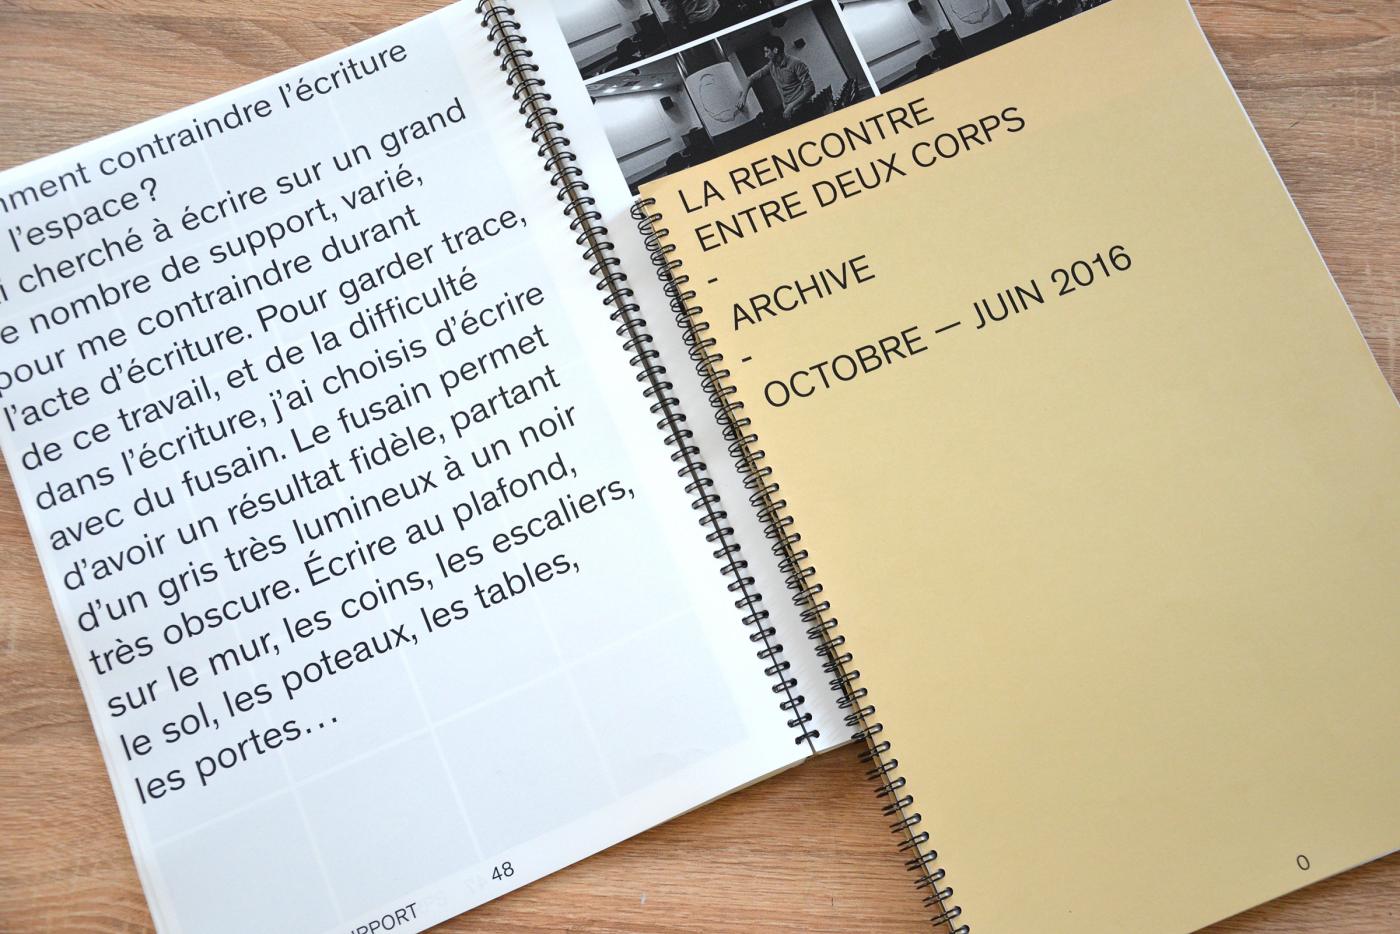 contraindre l'écriture
l'espace ?
cherché à écrire sur un grand
nombre de support, varié,
pour me contraindre durant
l'acte d'écriture. Pour garder trace,
de ce travail, et de la difficulté
dans l'écriture, j'ai choisis d'écrire
avec du fusain. Le fusain permet
d'avoir un résultat fidèle, partant
d'un gris très lumineux à un noir
très obscure. Écrire au plafond,
sur le mur, les coins, les escaliers,
le sol, les poteaux, les tables,
les portes…
48
LA RENCONTRE
ENTRE DEUX CORPS
-
ARCHIVE
-
OCTOBRE — JUIN 2016
0